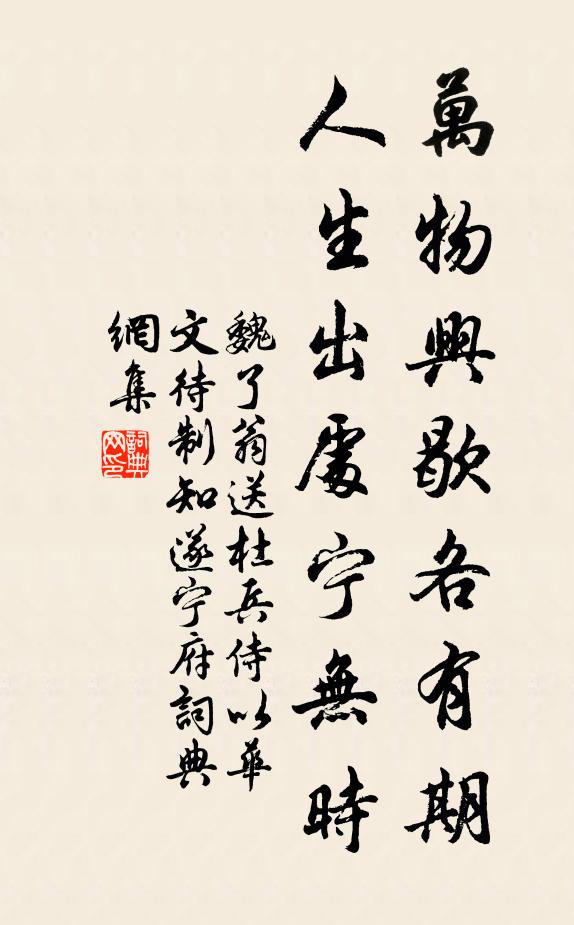 萬物興歇各有期
人生出處宁無時
魏了翁送杜兵侍以華
文待制知遂宁府詞典
網集
詞典
网印